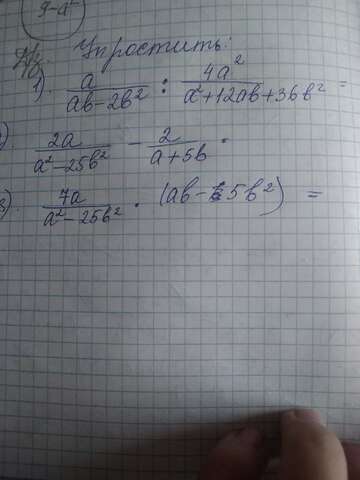 9-a²
Д/з. Упростить:
1). a/(ab-2b²) : 4a²/(a²+12ab+36b²) =
2a/(a²-25b²) - 2/(a+5b) .
3). 7a/(a²-25b²) · (ab-5b²) =